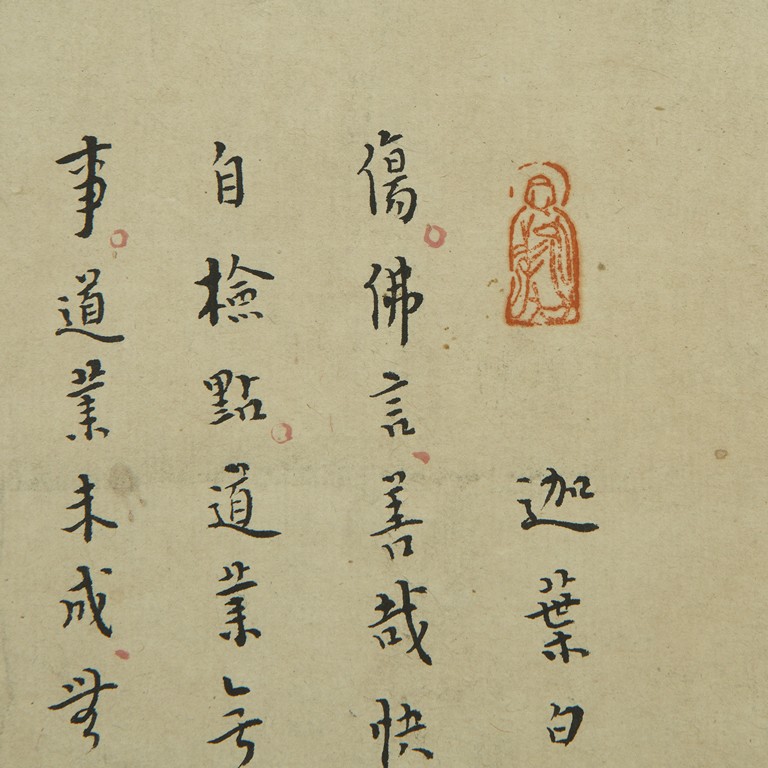 迦葉白
傷佛言善哉快
自檢點道業
事道業未成